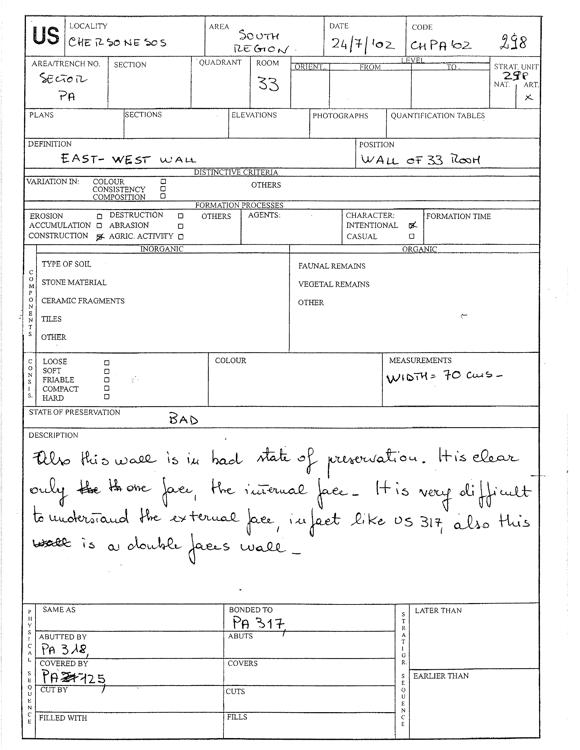 US
LOCALITY
CHERSONESOS
AREA
SOUTH
REGION
DATE
24/7/'02
CODE
CHPA'02
298
AREA/TRENCH NO.
SECTOR
PA
SECTION
QUADRANT
ROOM
33
LEVEL
ORIENT. FROM TO.
STRAT. UNIT
298
NAT. ART.
x
PLANS
SECTIONS
ELEVATIONS
PHOTOGRAPHS
QUANTIFICATION TABLES
DEFINITION
EAST-WEST WALL
POSITION
WALL OF 33 ROOM
DISTINCTIVE CRITERIA
VARIATION IN: COLOUR
CONSISTENCY
COMPOSITION
OTHERS
FORMATION PROCESSES
EROSION DESTRUCTION OTHERS
ACCUMULATION ABRASION
CONSTRUCTION x AGRIC. ACTIVITY
AGENTS:
CHARACTER:
INTENTIONAL x
CASUAL
FORMATION TIME
COMPONENTS
INORGANIC
TYPE OF SOIL
STONE MATERIAL
CERAMIC FRAGMENTS
TILES
OTHER
ORGANIC
FAUNAL REMAINS
VEGETAL REMAINS
OTHER
CONSIS.
LOOSE
SOFT
FRIABLE
COMPACT
HARD
COLOUR
MEASUREMENTS
WIDTH= 70 cms-
STATE OF PRESERVATION
BAD
DESCRIPTION
Also this wall is in bad state of preservation. It is clear
only the th one face, the internal face - It is very difficult
to understand the external face, in fact like US 317, also this
wall is a double faces wall -
PHYSICAL SEQUENCE
SAME AS
BONDED TO
PA 317,
ABUTTED BY
PA 318,
ABUTS
COVERED BY
PA 125,
COVERS
CUT BY
CUTS
FILLED WITH
FILLS
STRATIGR. SEQUENCE
LATER THAN
EARLIER THAN